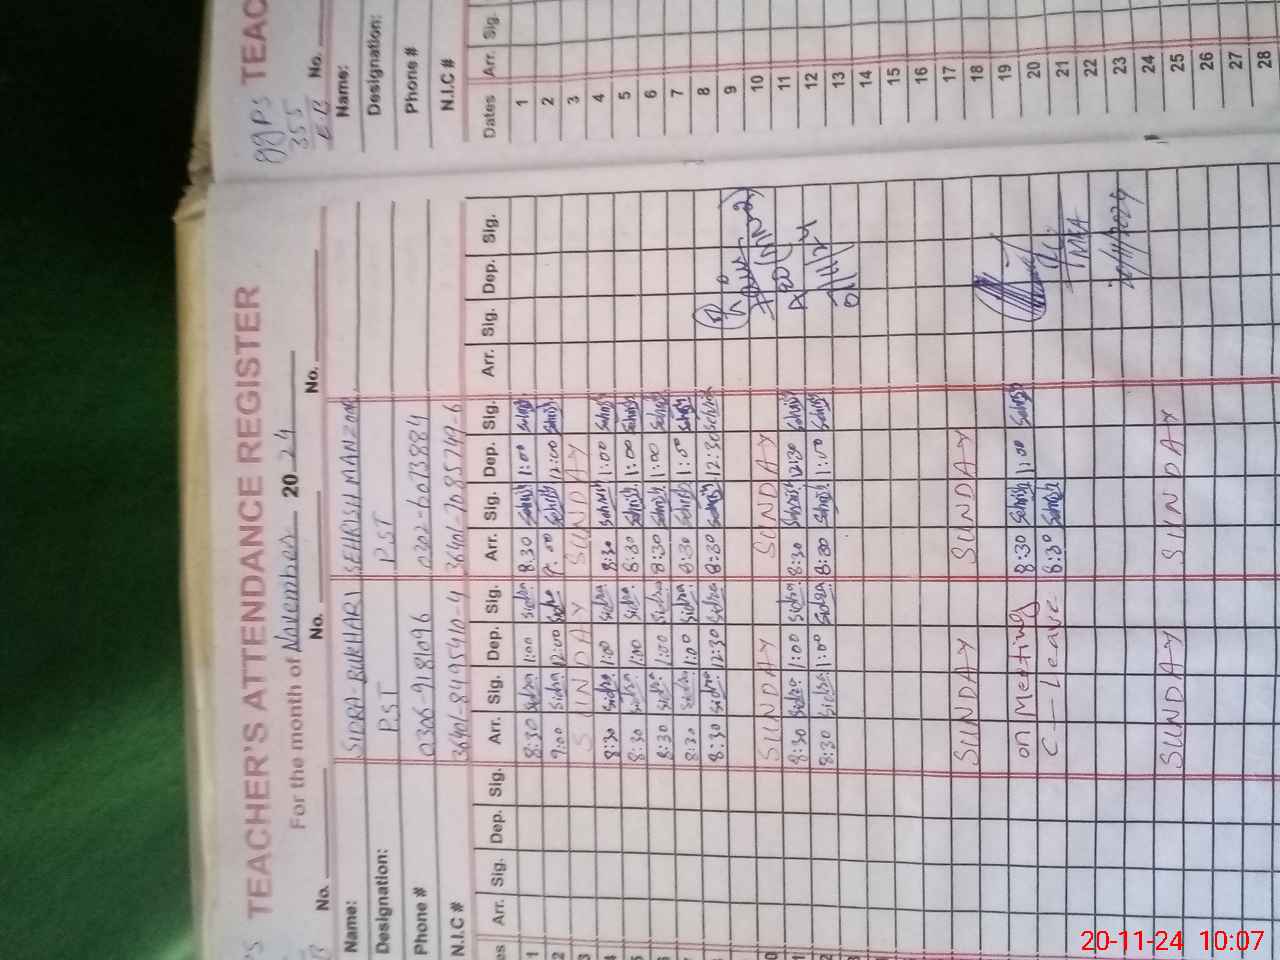 TEACHER'S ATTENDANCE REGISTER
For the month of November 2024
No. No. No.
Name: SIDRA-BUKHARI SEHRISH MANZOOR
Designation: PST PST
Phone # 0306-9181096 0302-6073884
N.I.C # 36401-8495410-4
Arr. Sig. Dep. Sig. Arr. Sig. Dep. Sig. Arr. Sig. Dep. Sig. Arr. Sig. Dep. Sig.
1 8:30 Sidra 1:00 Sidra 8:30 Sehrish 1:00 Sehrish
2 9:00 Sidra 12:00 Sidra 9:00 Sehrish 12:00 Sehrish
3 SUNDAY SUNDAY
8:30 Sidra 1:00 Sidra 8:30 Sehrish 1:00 Sehrish
8:30 Sidra 1:00 Sidra 8:30 Sehrish 1:00 Sehrish
8:30 Sidra 1:00 Sidra 8:30 Sehrish 1:00 Sehrish
8:30 Sidra 1:00 Sidra 8:30 Sehrish 1:00 Sehrish
8:30 Sidra 12:30 Sidra 8:30 Sehrish 12:30 Sehrish
SUNDAY SUNDAY
8:30 Sidra 1:00 Sidra 8:30 Sehrish 12:30 Sehrish
8:30 Sidra 1:00 Sidra 8:30 Sehrish 1:00 Sehrish
SUNDAY SUNDAY
on Meeting 8:30 Sehrish 1:00 Sehrish
C — Leave 8:30 Sehrish
MEA
20/11/2024
SUNDAY SUNDAY
GGPS
355
EB
TEAC
No.
Name:
Designation:
Phone #
N.I.C #
Dates Arr. Sig.
1
2
3
4
5
6
7
8
9
10
11
12
13
14
15
16
17
18
19
20
21
22
23
24
25
26
27
28
20-11-24 10:07